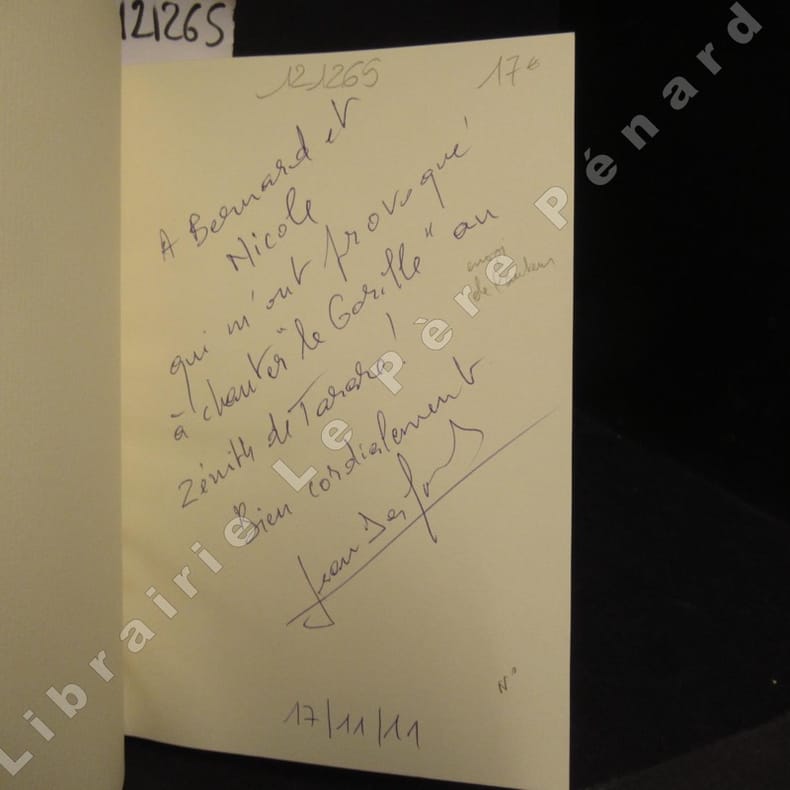 121265
121265
17 €
A Bernard et
Nicole
qui m'ont provoqué
à chanter "le Gorille" au
Zénith de Tarare !
Bien cordialement
envoi
de l'auteur
17/11/11
N°
Librairie Le Père Pénard